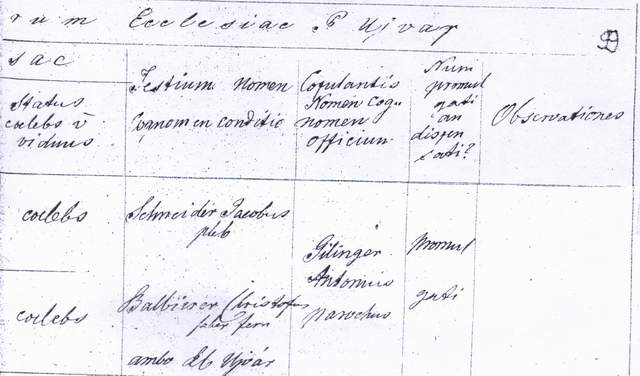 rum Ecclesiae P Ujvar
sac
Status
coelebs v̄
viduus
Testium nomen
Cognomen conditio
Copulantis
Nomen Cog-
nomen
Officium
Num
promul
gati
an
dispen
sati?
Observationes
coelebs
Schneider Jacobus
pleb
Pilinger
Antonius
parochus
Promul
gati
coelebs
Balbierer Cristofor
faber ferr
ambo El. Ujvár